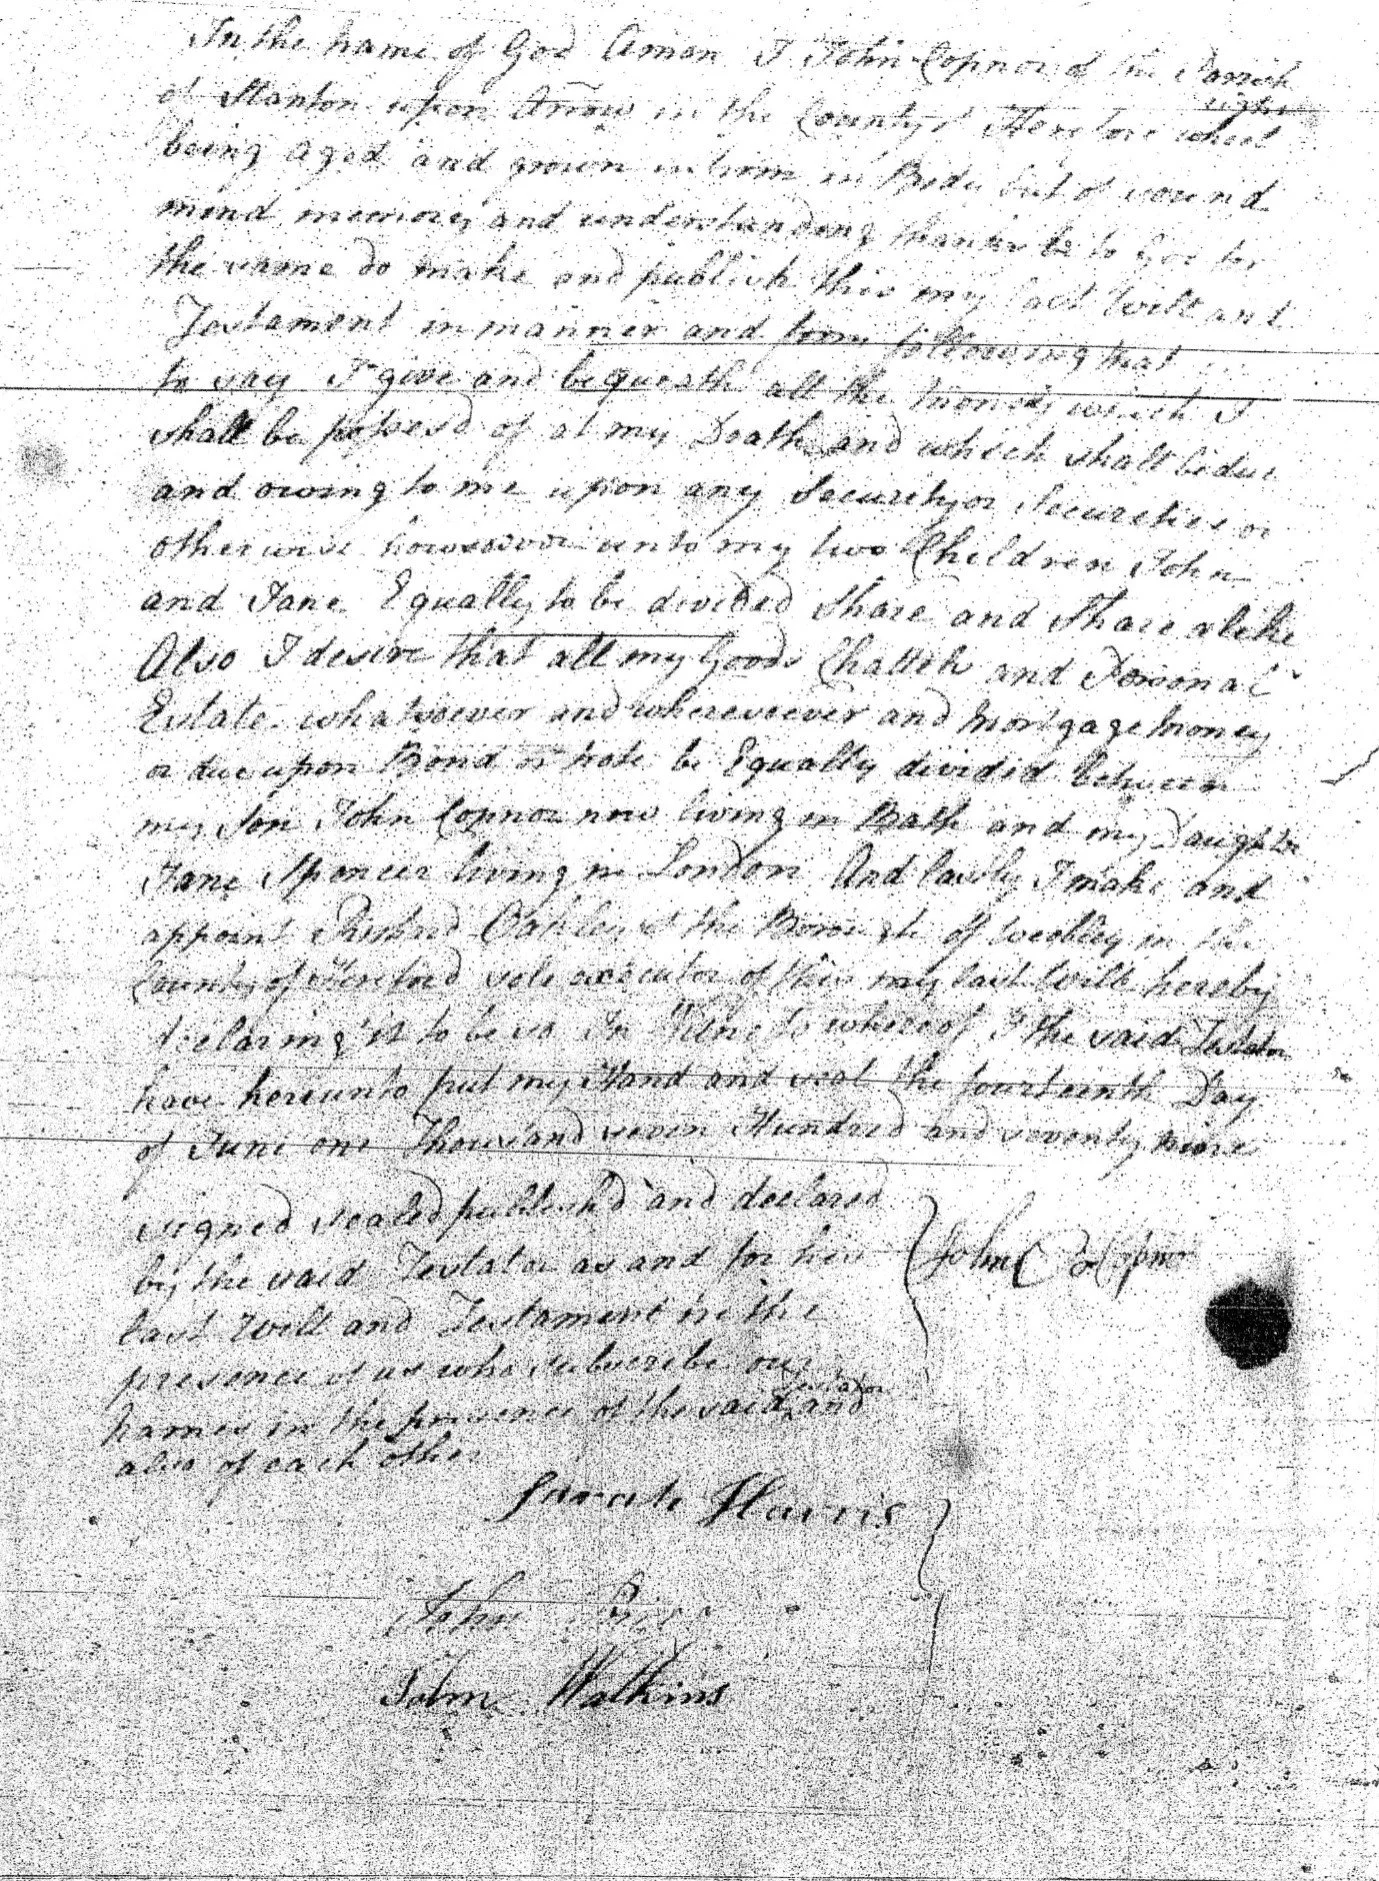 In the name of God Amen I John Copner of the Parish
of Stanton upon Arrow in the County of Hereford wheel
wright
being aged and grown infirm in Body but of sound
mind memory and understanding thanks be to God for
the same do make and publish this my last Will and
Testament in manner and form following that
to say I give and bequeath all the money which I
shall be possess'd of at my Death and which shall be due
and owing to me upon any Security or Securities or
otherwise howsoever unto my two Children John
and Jane Equally to be divided Share and Share alike
Also I desire that all my Goods Chattels and Personal
Estate whatsoever and wheresoever and mortgage money
or due upon Bond or note be Equally divided between
my Son John Copner now living in Bath and my Daughter
Jane Spencer living in London And lastly I make and
appoint Richard Oakley of the Borough of Weobley in the
County of Hereford sole executor of this my last Will hereby
declaring it to be so In Witness whereof I the said Testator
have hereunto put my Hand and seal the fourteenth Day
of June one Thousand seven Hundred and seventy nine
signed sealed publish'd and declared
by the said Testator as and for his
last Will and Testament in the
presence of us who subscribe our
names in the presence of the said testator and
also of each other
John Copner
Sarah Harris
John
John Watkins